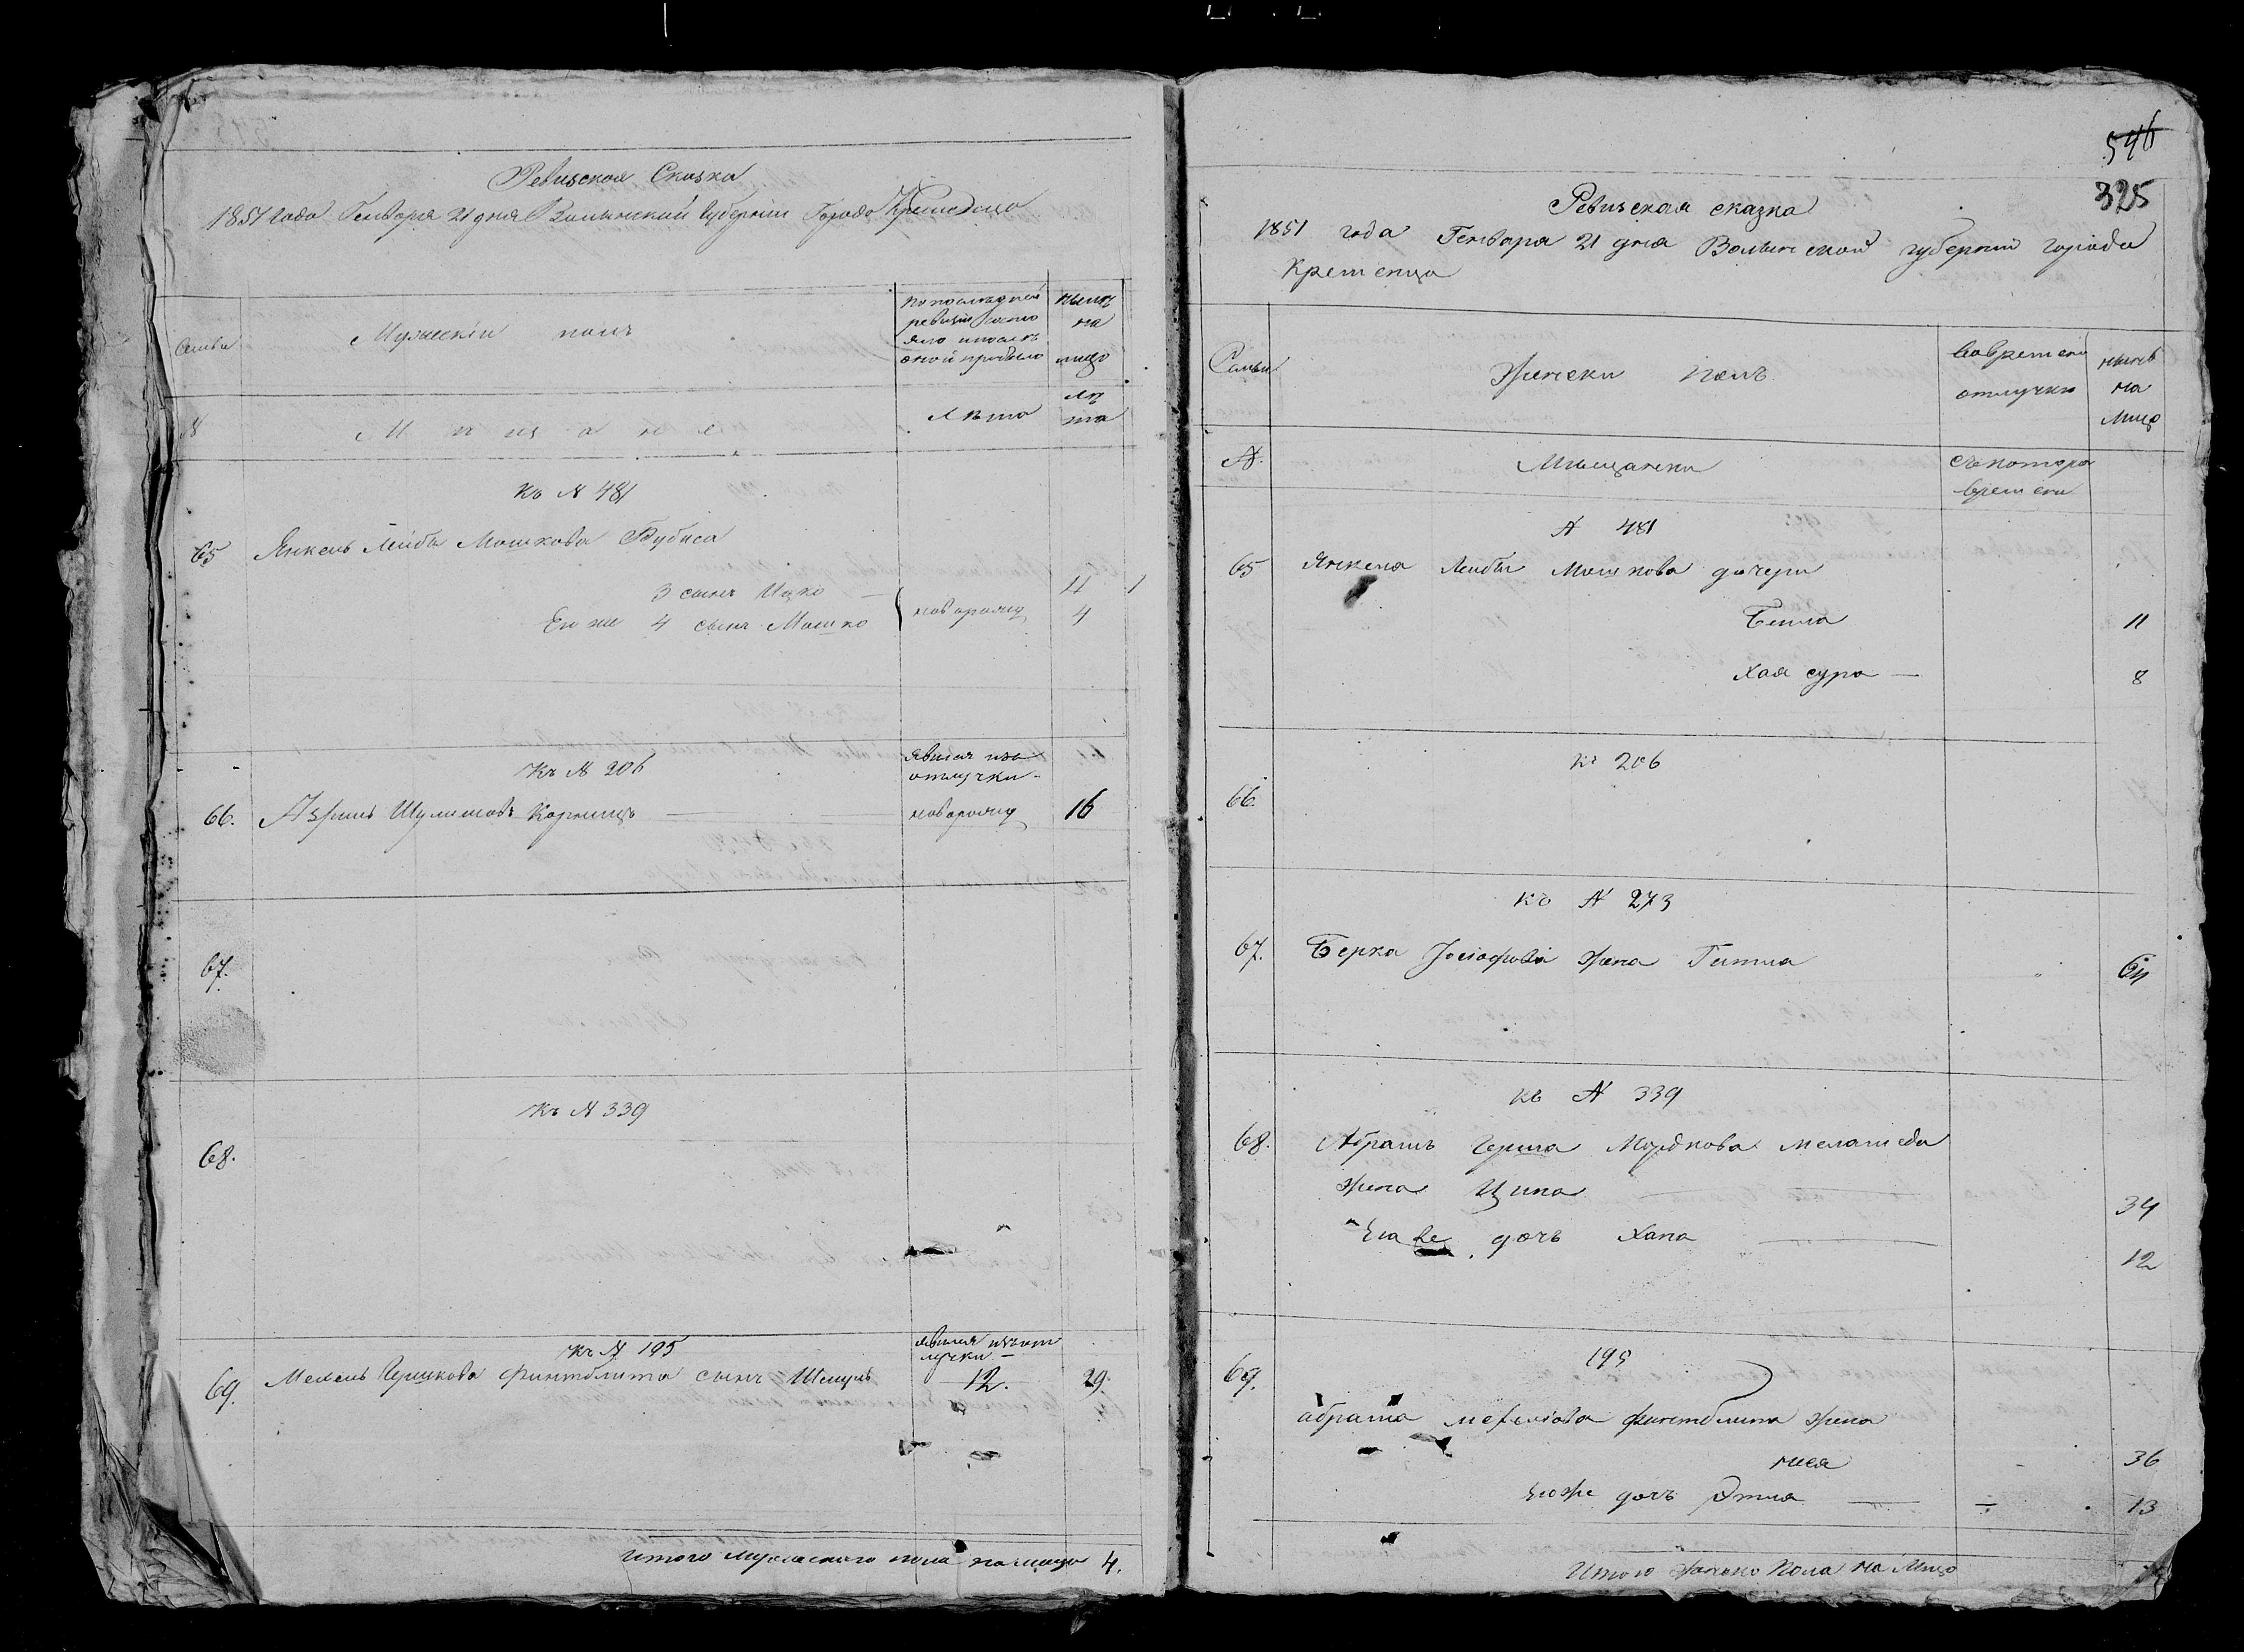 Ревизская Сказка
1851 года Генваря 21 дня Волынский Губернiи Города Кременца
Семьи
Мужескiй полъ
по последней
ревизiи состо
яло и после
оной прибыло
ныне
на
лицо
№
Мещане
Лета
ле
та
Къ № 481
65 Янкель Лейбы Мошкова Бубиса
3 сынъ Ицко — 4 1
Ею же 4 сынъ Мошко новорожд 4
Къ № 206
явился изъ
отлучки
66. Азриль Шулимовъ Корницъ новорожд 16
67.
Къ № 339
68.
Къ № 195
явился изъ от
лучки —
69. Мехель Гершкова Финтблита сынъ Шмуль 12. 29.
Итого мужескаго пола на лицо 4.
546
325
Ревизская сказка
1851 года Генваря 21 дня Волынской губернiи города
Кременца
Семьи
Женски полъ
Во времено
отлучки
ныне
на
лицо
№.
Мещанки
съ котора
времени
№ 481
65 Янкеля Лейбы Мошкова дочери
Бейла 11
Хая сура — 8
к 206
66.
Къ № 273
67. Берка Iосiофова жена Гитла 64
Къ № 339
68. Абрамъ Герша Мордкова меламеда
жена Ципа 34
Его же дочь Хана 12
195
69.
абрама мехелiова финтблита жена
нися 36
Его же дочь Этля — 13
Итого женско Пола на Лицо 7